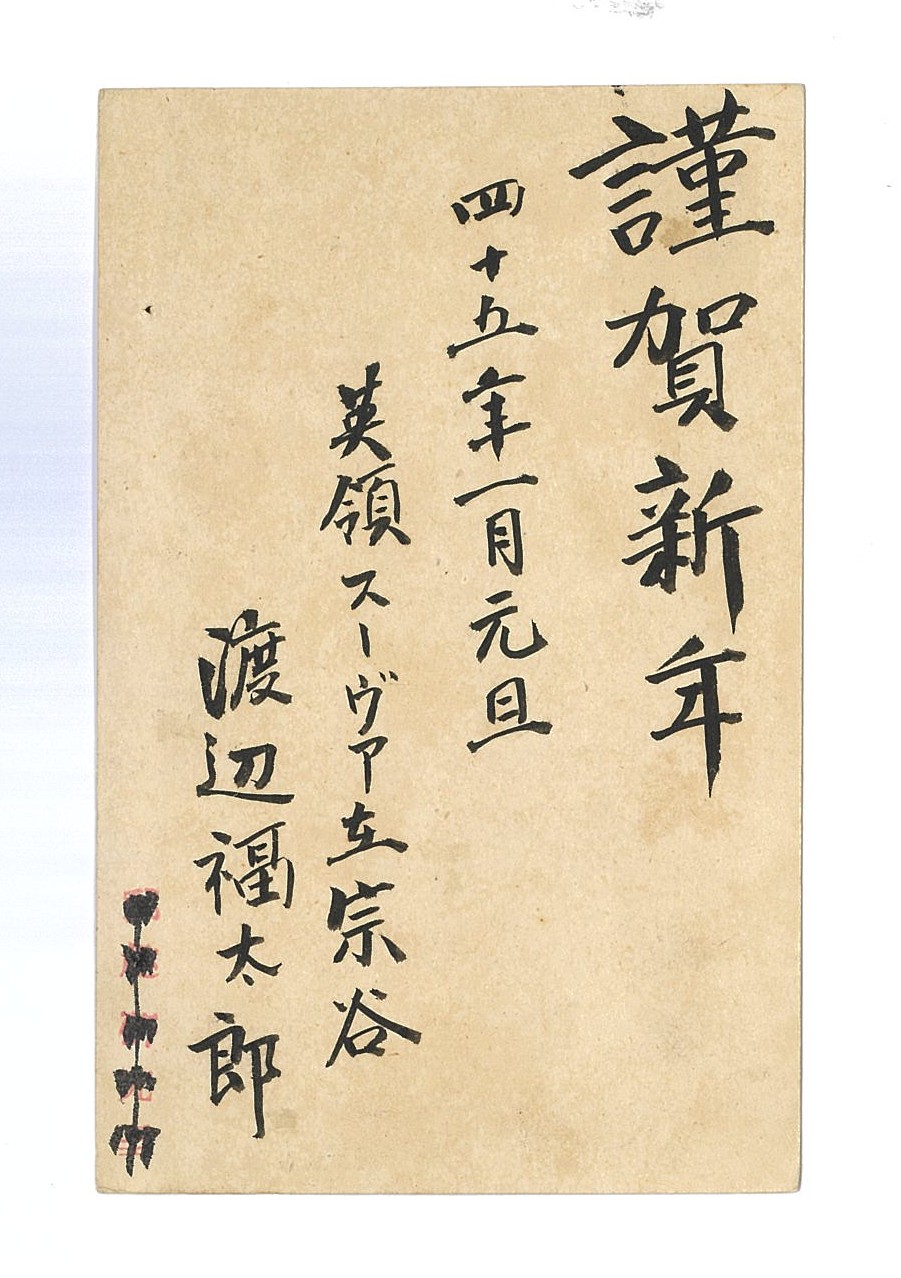 謹賀新年
四十五年一月元旦
英領スーヴァ在宗谷
渡辺福太郎